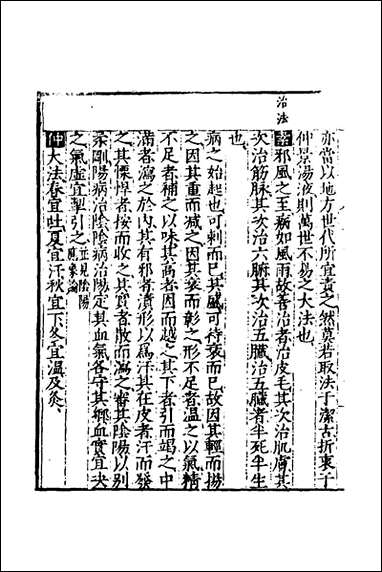 亦當以地方世代所宜責之然莫若取法于潔古折衷于
仲景湯液則萬世不易之大法也
治法
素邪風之至病如風雨故善治者治皮毛其次治肌膚其
次治筋脉其次治六腑其次治五臓治五臓者半死半生
也
病之始起也可刺而已其盛可待衰而已故因其輕而揚
之因其重而减之因其衰而彰之形不足者温之以氣精
不足者補之以味其高者因而越之其下者引而竭之中
滿者瀉之於內其有邪者漬形以爲汗其在皮者汗而發
之其慓悍者按而收之其實者散而瀉之審其陰陽以别
柔剛陽病治陰陰病治陽定其血氣各守其鄉血實宜决
之氣虛宜掣引之並見陰陽
應象論
仲大法春宜吐夏宜汗秋宜下冬宜温及灸